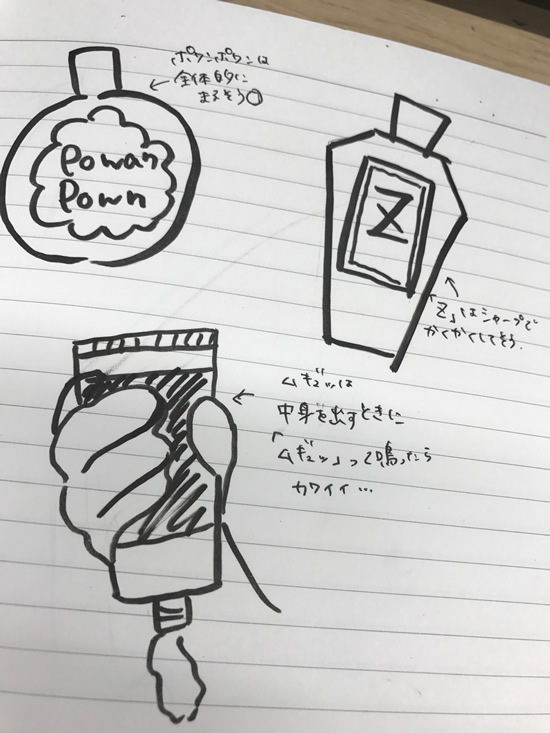 ポワンポワンは
全体的に
まるそう○
Powan
Pown
Z
「Z」はシャープで
かくかくしてそう.
ムギュッは
中身を出すときに
「ムギュッ」って鳴ったら
カワイイ…